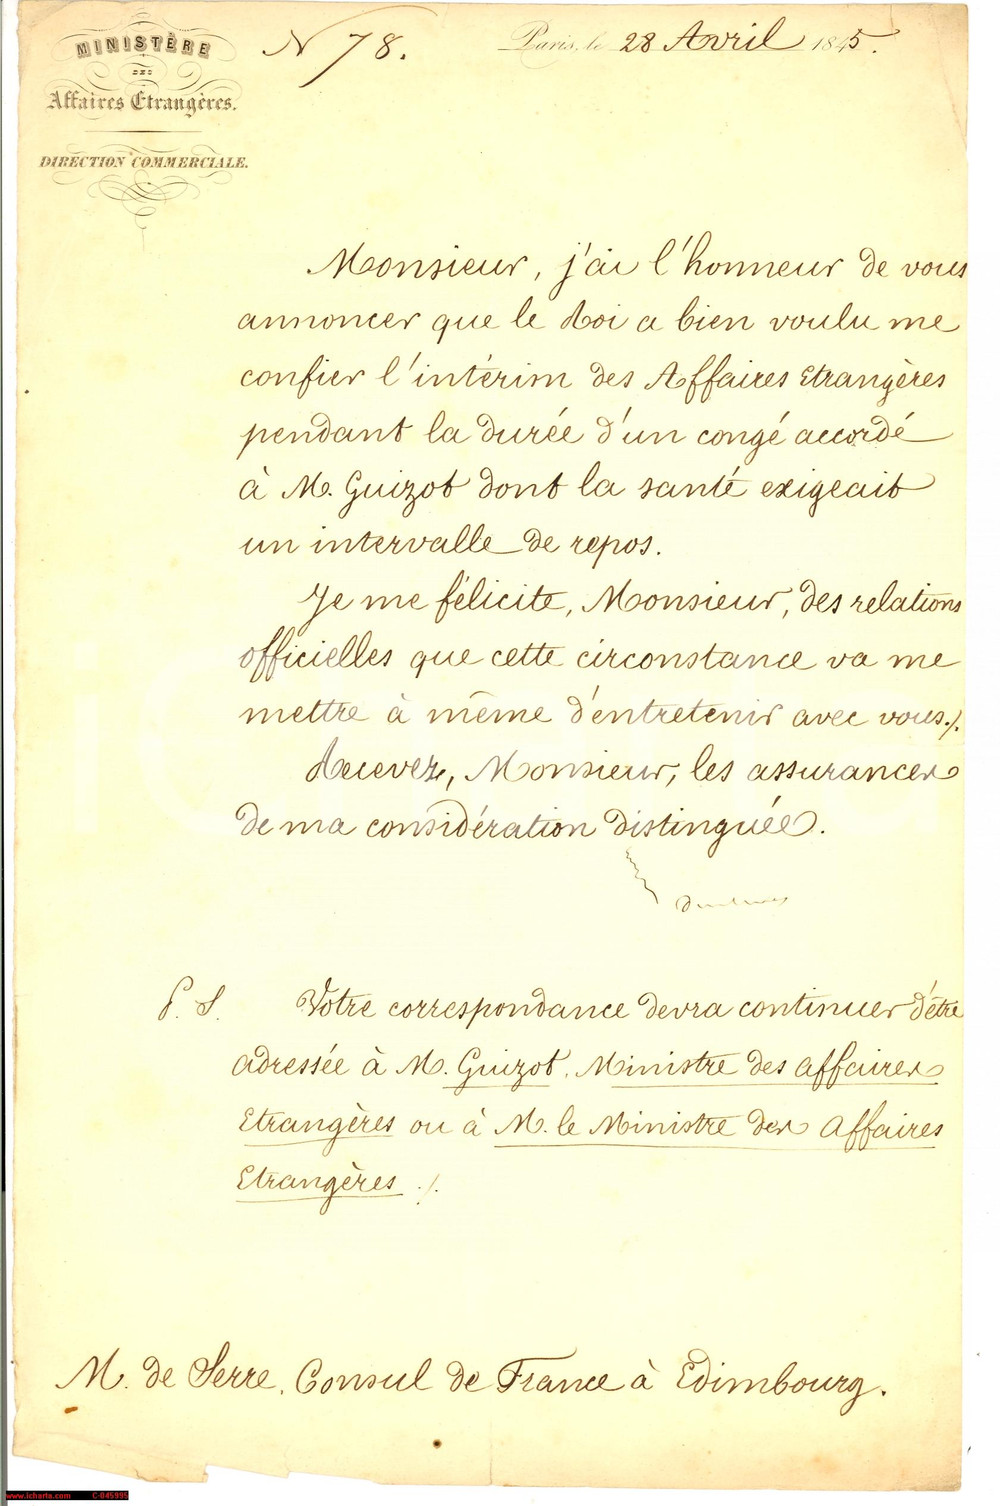 MINISTÈRE
DES
Affaires Etrangères.
DIRECTION COMMERCIALE.
N 78.
Paris, le 28 Avril 1845.
Monsieur, j'ai l'honneur de vous
annoncer que le Roi a bien voulu me
confier l'intérim des Affaires Etrangères
pendant la durée d'un congé accordé
à M. Guizot dont la santé exigeait
un intervalle de repos.
Je me félicite, Monsieur, des relations
officielles que cette circonstance va me
mettre à même d'entretenir avec vous./.
Recevez, Monsieur, les assurances
de ma considération distinguée.
P. S. Votre correspondance devra continuer d'être
adressée à M. Guizot, Ministre des affaires
Etrangères ou à M. le Ministre des Affaires
Etrangères ./.
M. de Serre, Consul de France à Edimbourg.
www.icharta.com C-045995